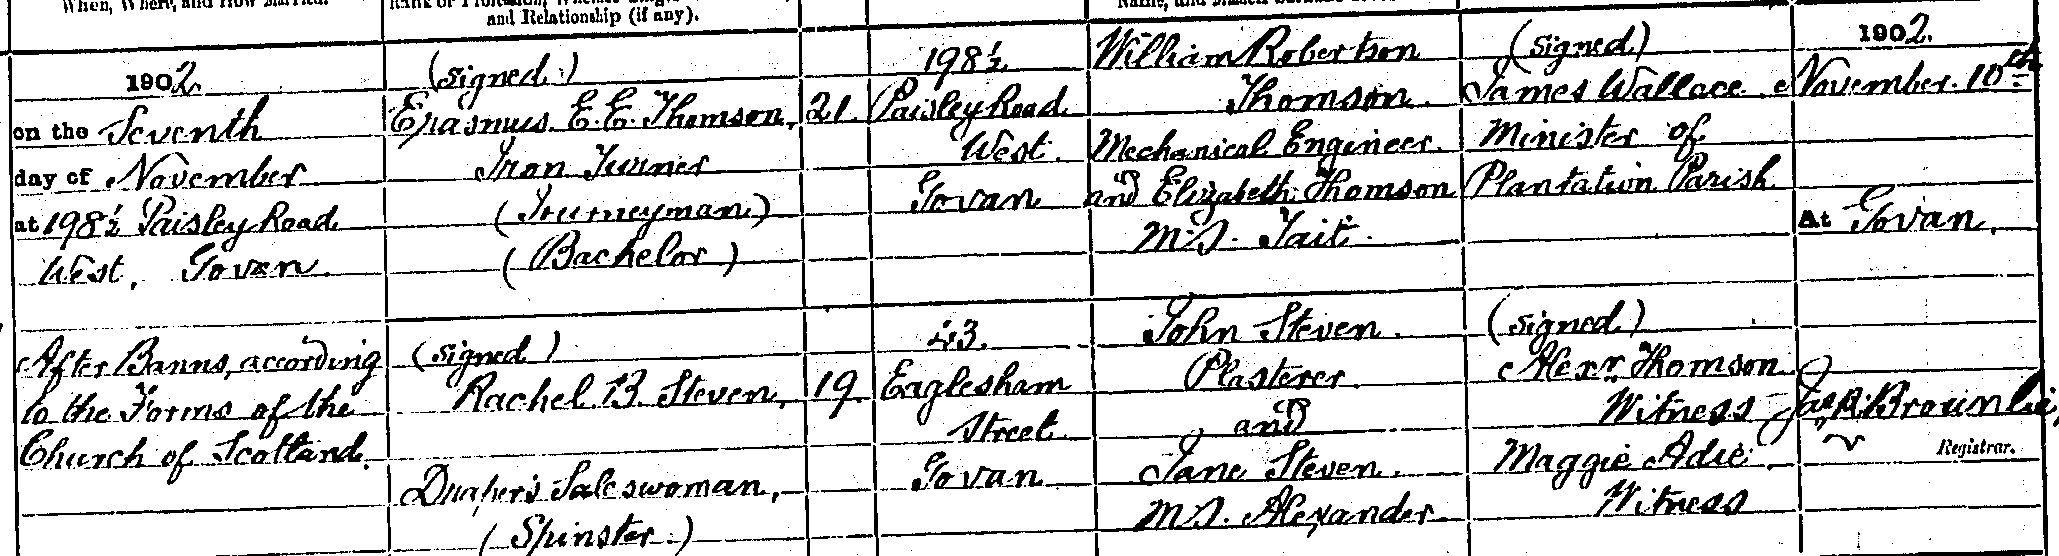 When, Where, and How Married.
and Relationship (if any).
1902.
on the Seventh
day of November
at 198½ Paisley Road
West, Govan.
After Banns, according
to the Forms of the
Church of Scotland.
(signed)
Erasmus E. E. Thomson,
Iron Turner
(Journeyman)
(Bachelor)
(signed)
Rachel B. Steven,
Draper's Saleswoman,
(Spinster)
21.
19.
198½
Paisley Road
West.
Govan
43.
Eaglesham
Street
Govan
William Robertson
Thomson.
Mechanical Engineer.
and Elizabeth Thomson
M.S. Tait.
John Steven.
Plasterer.
and
Jane Steven.
M.S. Alexander.
(signed)
James Wallace
Minister of
Plantation Parish
(signed)
Alexr. Thomson
Witness
Maggie Adie
Witness
1902.
November. 10th
At Govan.
Jas. R. Brownlie,
Registrar.